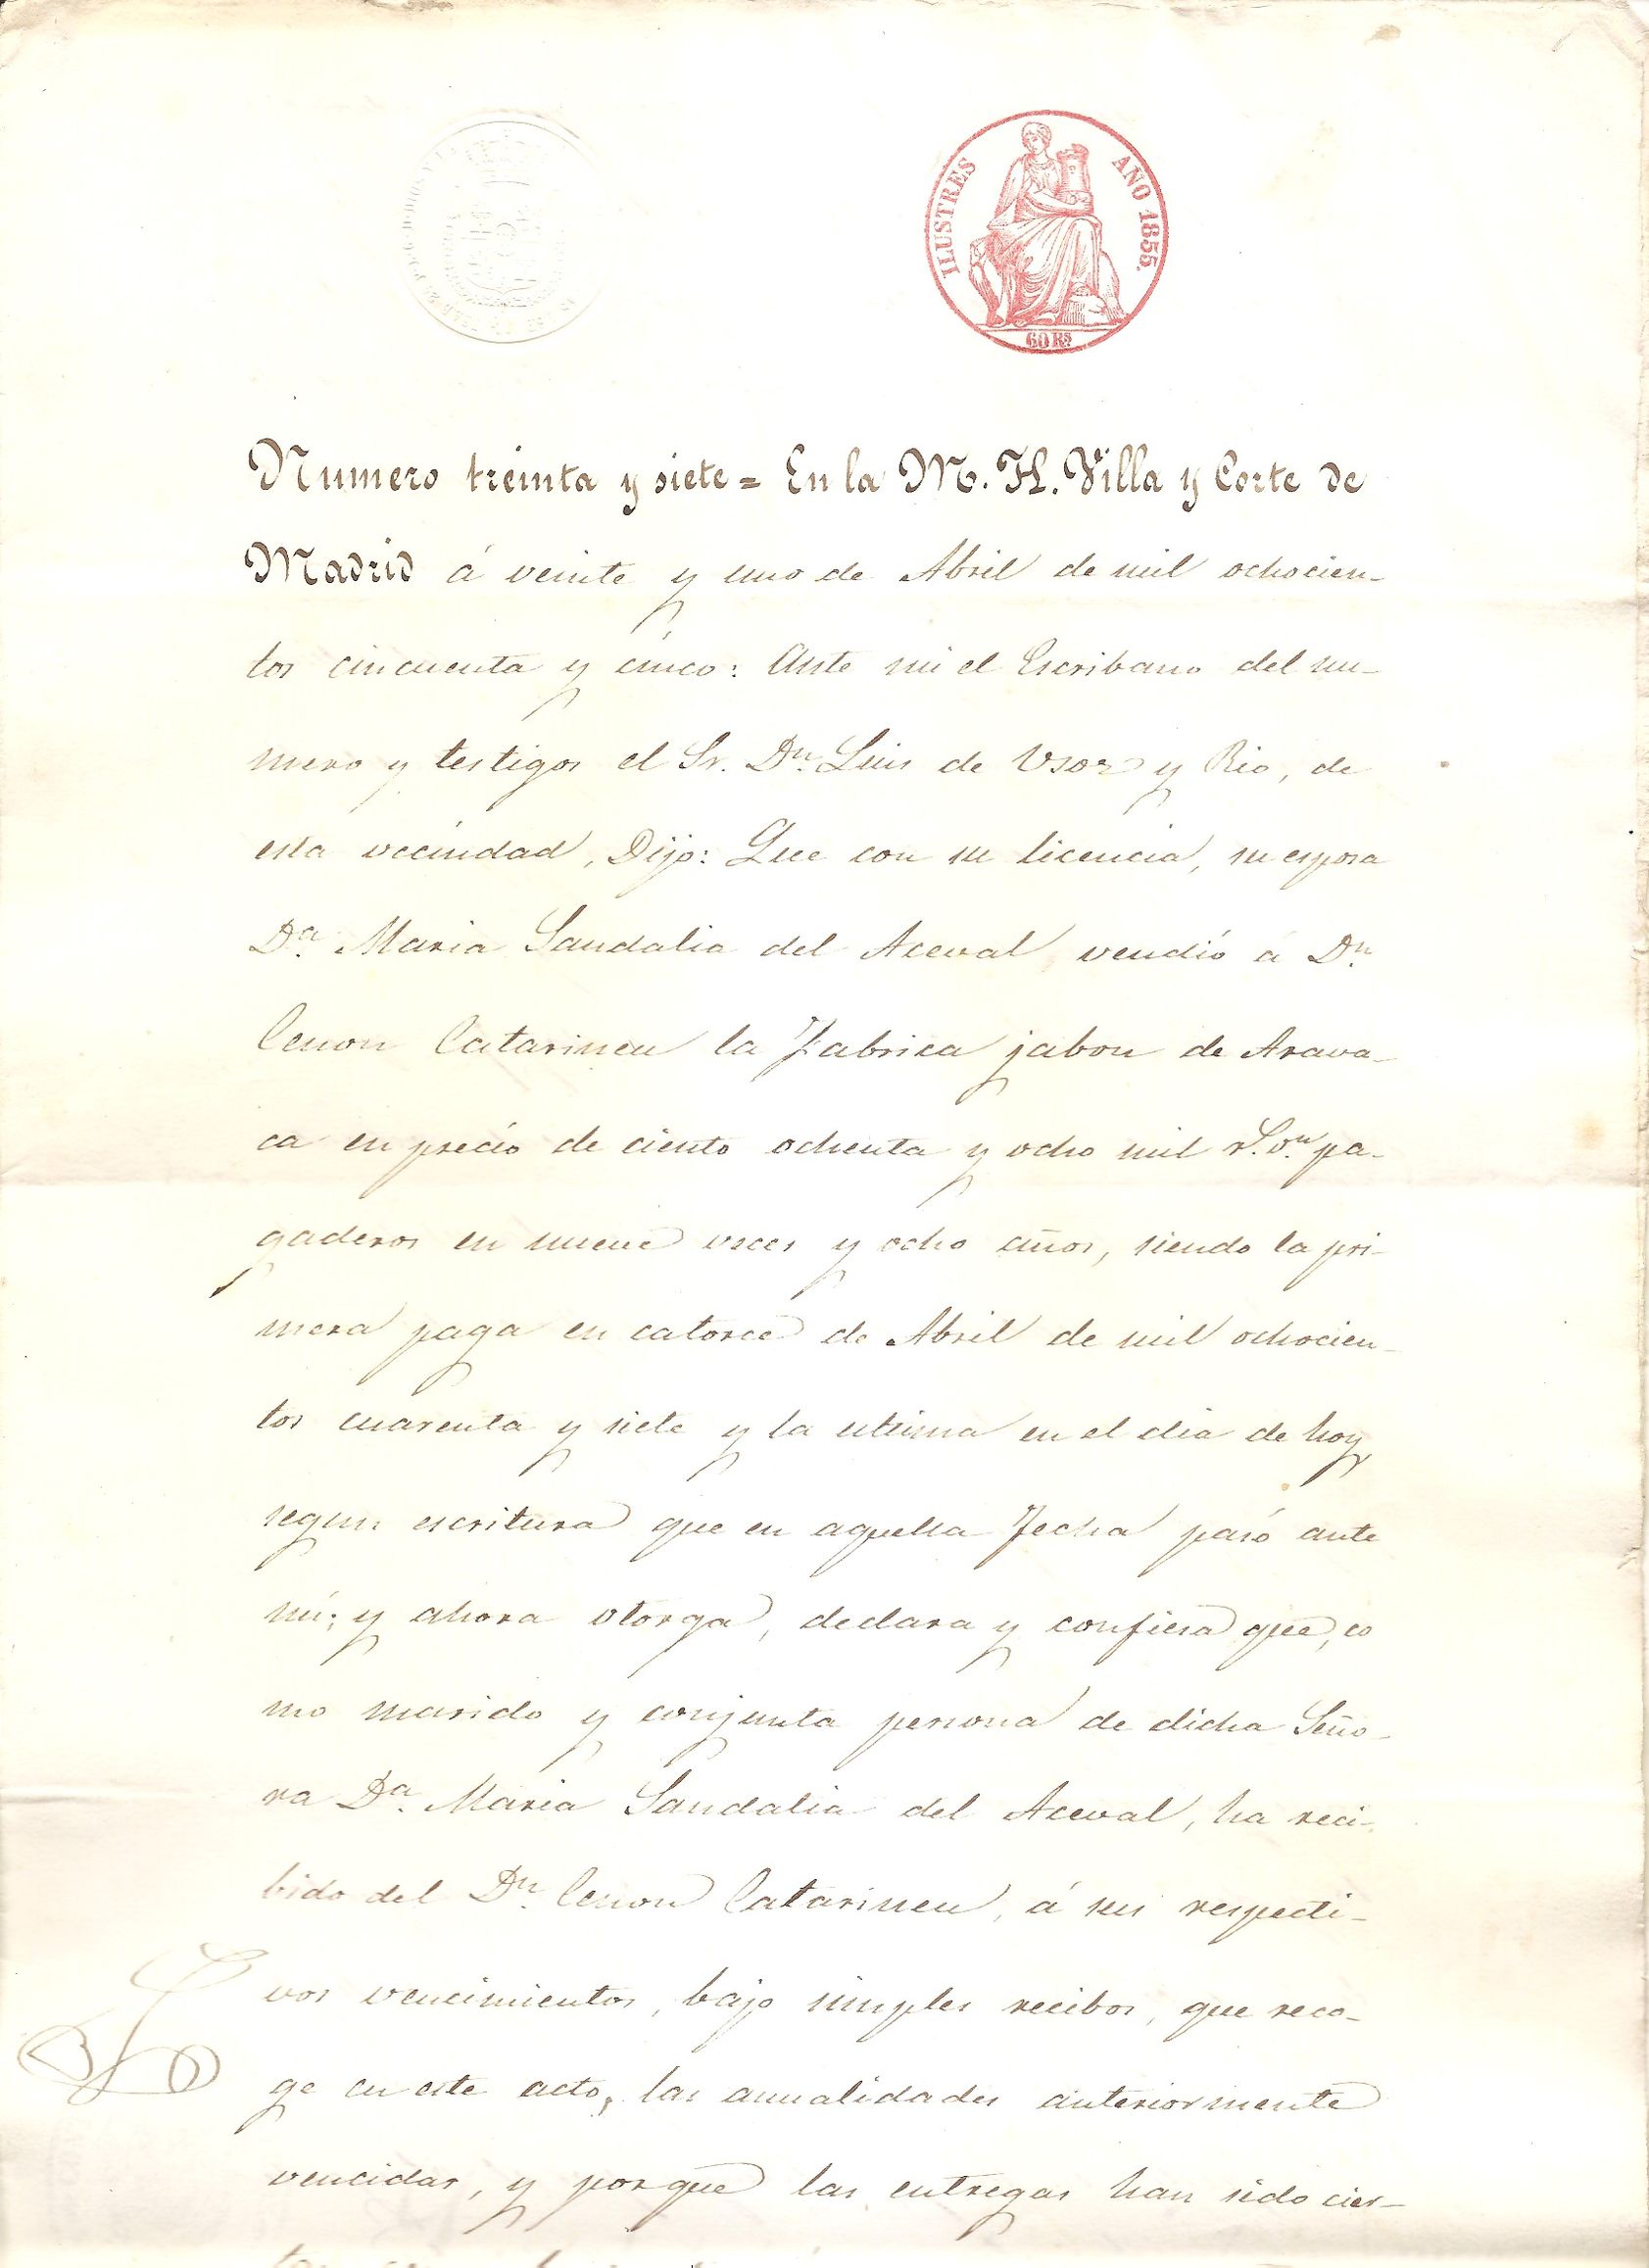 ILUSTRES AÑO 1855.
60 Rs
Numero treinta y siete = En la M. H. Villa y Corte de
Madrid á veinte y uno de Abril de mil ochocien-
tos cincuenta y cinco: Ante mi el Escribano del nu-
mero y testigos el Sr. Dn. Luis de Usoz y Rio, de
esta vecindad, Dijo: Que con su licencia, su esposa
Da. Maria Sandalia del Aceval vendió á Dn.
Cenon Catarineu la Fabrica jabon de Arava-
ca en precio de ciento ochenta y ocho mil rs. vn. pa-
gaderos en nueve veces y ocho años, siendo la pri-
mera paga en catorce de Abril de mil ochocien-
tos cuarenta y siete y la ultima en el dia de hoy,
segun escritura que en aquella fecha pasó ante
mí; y ahora otorga, declara y confiesa que, co
mo marido y conjunta persona de dicha Seño-
ra Da. Maria Sandalia del Aceval, ha reci-
bido del Dn. Cenon Catarineu, á sus respecti-
vos vencimientos, bajo simples recibos, que reco-
ge en este acto, las anualidades anteriormente
vencidas, y porque las entregas han sido cier-